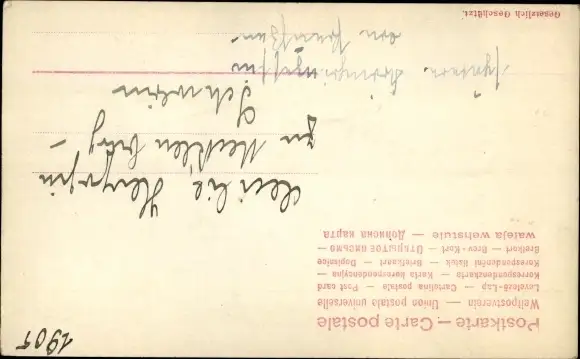 Postkarte — Carte postale
Weltpostverein — Union postale universelle
Levelező-Lap — Cartolina postale — Post card
Korrespondenzkarte — Karta korespondencyjna
Korespondenční lístek — Briefkaart — Dopisnice
Brefkort — Brev-Kort — Открытое письмо —
waleja wehstule — Дописна карта
Cecilie, Herzogin
zu Mecklenburg-
Schwerin
Kronprinzessin
von Preußen
Gesetzlich Geschützt.
1905